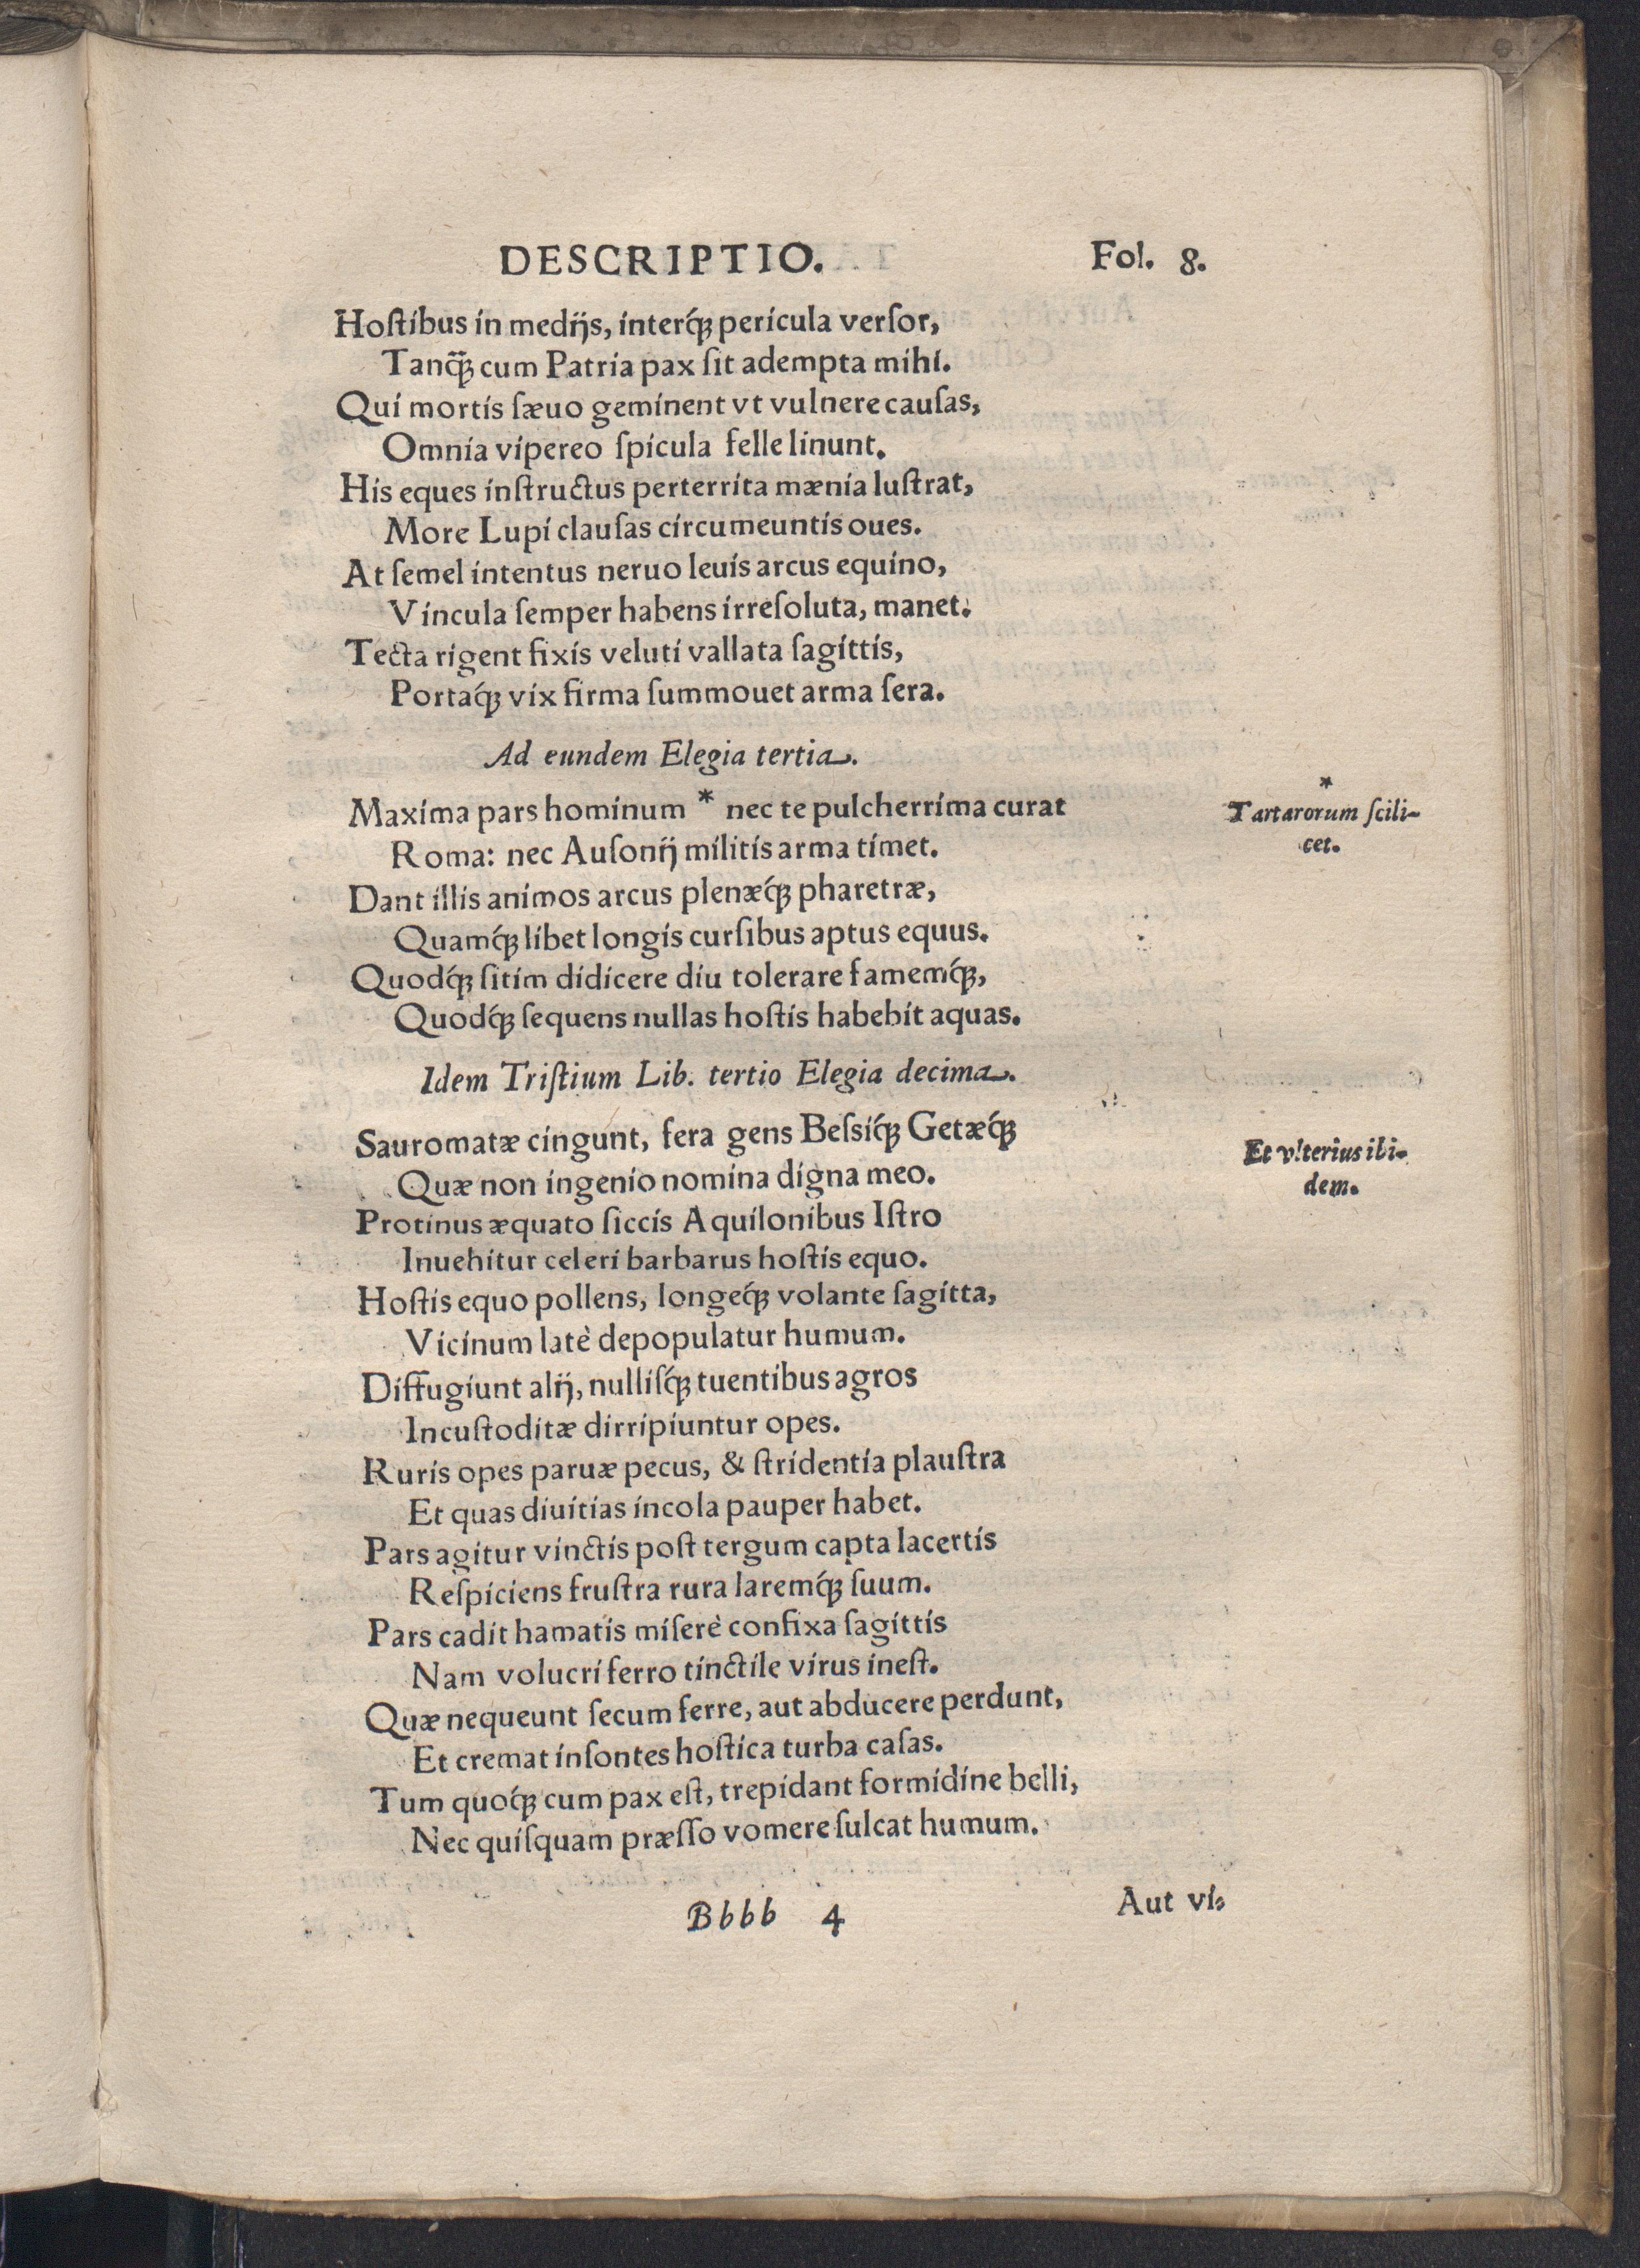 DESCRIPTIO. Fol. 8.
Hoſtibus in medijs, interq́ꝫ pericula verſor,
Tanq̃ꝫ cum Patria pax ſit adempta mihi.
Qui mortis ſæuo geminent vt vulnere cauſas,
Omnia vipereo ſpicula felle linunt.
His eques inſtructus perterrita mænia luſtrat,
More Lupi clauſas circumeuntis oues.
At ſemel intentus neruo leuis arcus equino,
Vincula ſemper habens irreſoluta, manet.
Tecta rigent fixis veluti vallata ſagittis,
Portaq́ꝫ vix firma ſummouet arma ſera.
Ad eundem Elegia tertia.
Maxima pars hominum * nec te pulcherrima curat
Roma: nec Auſonij militis arma timet.
Dant illis animos arcus plenæq́ꝫ pharetræ,
Quamq́ꝫ libet longis curſibus aptus equus.
Quodq́ꝫ ſitim didicere diu tolerare famemq́ꝫ,
Quodq́ꝫ ſequens nullas hoſtis habebit aquas.
*
Tartarorum ſcili-
cet.
Idem Triſtium Lib. tertio Elegia decima.
Sauromatæ cingunt, fera gens Beſsiq́ꝫ Getæq́ꝫ
Quæ non ingenio nomina digna meo.
Protinus æquato ſiccis Aquilonibus Iſtro
Inuehitur celeri barbarus hoſtis equo.
Hoſtis equo pollens, longeq́ꝫ volante ſagitta,
Vicinum latè depopulatur humum.
Diffugiunt alij, nulliſq́ꝫ tuentibus agros
Incuſtoditæ dirripiuntur opes.
Ruris opes paruæ pecus, & ſtridentia plauſtra
Et quas diuitias incola pauper habet.
Pars agitur vinctis poſt tergum capta lacertis
Reſpiciens fruſtra rura laremq́ꝫ ſuum.
Pars cadit hamatis miſerè confixa ſagittis
Nam volucri ferro tinctile virus ineſt.
Quæ nequeunt ſecum ferre, aut abducere perdunt,
Et cremat inſontes hoſtica turba caſas.
Tum quoq́ꝫ cum pax eſt, trepidant formidine belli,
Nec quiſquam præſſo vomere ſulcat humum.
Et vlterius ibi-
dem.
Bbbb 4
Aut vi-